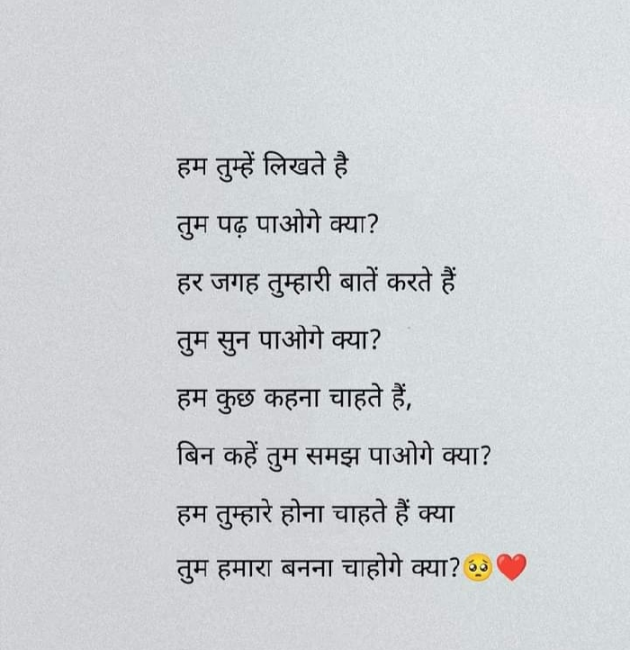 हम तुम्हें लिखते है
तुम पढ़ पाओगे क्या?
हर जगह तुम्हारी बातें करते हैं
तुम सुन पाओगे क्या?
हम कुछ कहना चाहते हैं,
बिन कहें तुम समझ पाओगे क्या?
हम तुम्हारे होना चाहते हैं क्या
तुम हमारा बनना चाहोगे क्या?🥺❤️